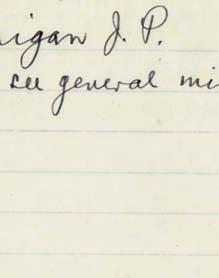 igan J. P.
see general mi